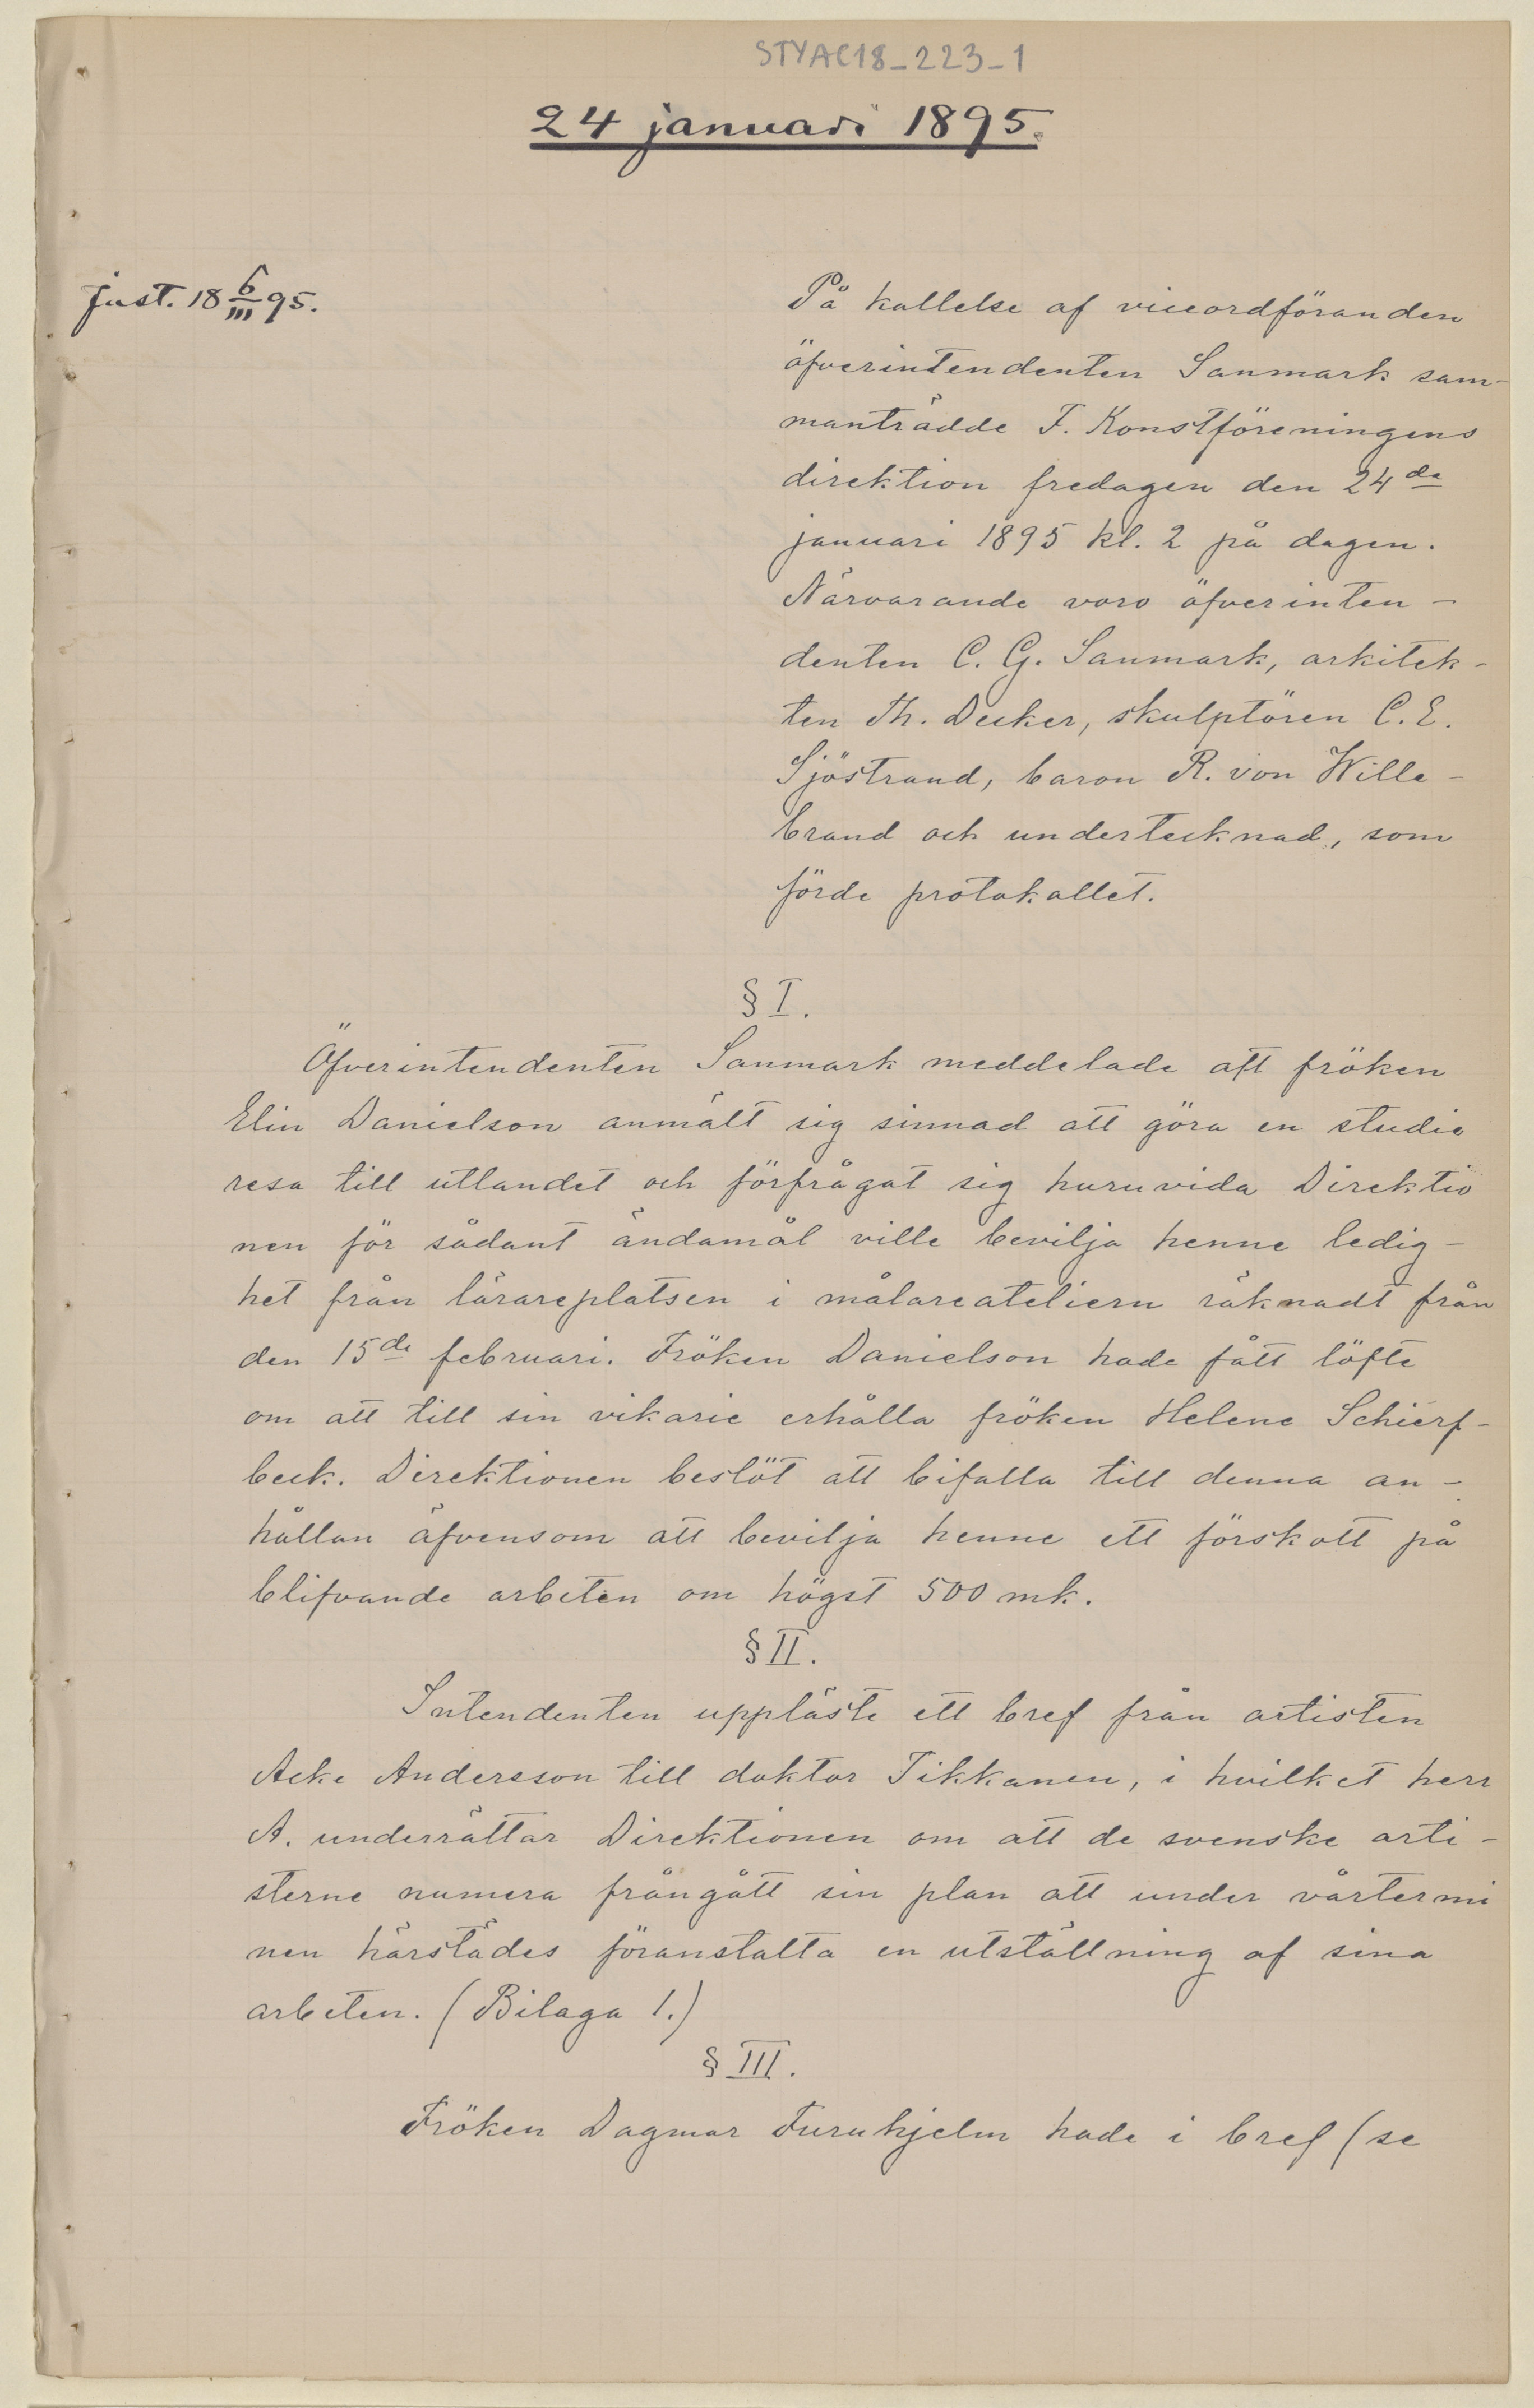 STYAC18_223_1
24 januari 1895.
Just. 18 6/III 95.
På kallelse af viceordföranden
öfverintendenten Sanmark sam-
manträdde F. Konstföreningens
direktion fredagen den 24de
januari 1895 kl. 2 på dagen.
Närvarande voro öfverinten-
denten C. G. Sanmark, arkitek-
ten Th. Decker, skulptören C. E.
Sjöstrand, baron R. von Wille-
brand och undertecknad, som
förde protokollet.
§ I.
Öfverintendenten Sanmark meddelade att fröken
Elin Danielson anmält sig sinnad att göra en studie
resa till utlandet och förfrågat sig huruvida Direktio
nen för sådant ändamål ville bevilja henne ledig-
het från lärareplatsen i målareateliern räknadt från
den 15de februari. Fröken Danielson hade fått löfte
om att till sin vikarie erhålla fröken Helene Schierf-
beck. Direktionen beslöt att bifalla till denna an-
hållan äfvensom att bevilja henne ett förskott på
blifvande arbeten om högst 500 mk.
§ II.
Intendenten uppläste ett bref från artisten
Acke Andersson till doktor Tikkanen, i hvilket herr
A. underrättar Direktionen om att de svenske arti-
sterne numera frångått sin plan att under vårtermi
nen härstädes föranstalta en utställning af sina
arbeten. (Bilaga 1.)
§ III.
Fröken Dagmar Furuhjelm hade i bref (se